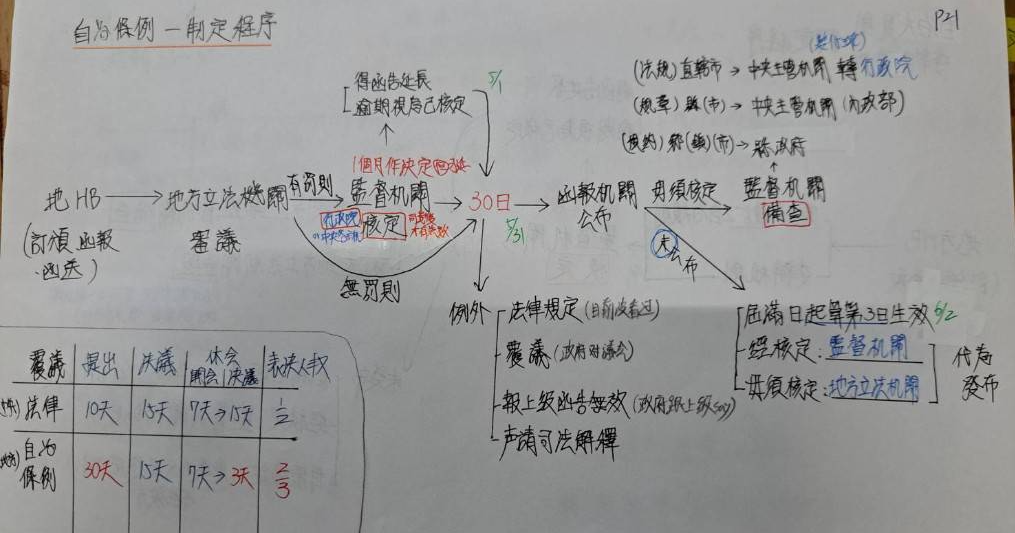 自治條例 — 制定程序
P21
得函告延長
逾期視為已核定
5/1
(法規) 直轄市 → 中央主管機關 轉 行政院
(規章) 縣(市) → 中央主管機關 (內政部)
(規約) 鄉(鎮)(市) → 縣政府
1個月作決定
地 HB → 地方立法機關 有罰則 → 監督機關 → 30日 → 函報機關 毋須核定 → 監督機關
公布
備查
(訂頒 函報
函送)
審議
行政院
核定
5/31
未公布
無罰則
例外
法律規定 (目前沒看過)
覆議 (政府對議會)
報上級函告無效 (政府跟上級say)
声請司法解釋
屆滿日起算第3日生效 6/2
經核定:監督機關
毋須核定:地方立法機關
代為
發布
覆議 提出 決議 休会 表決人数
開会 決議
法律 10天 15天 7天→15天 1/2
自治
條例 30天 15天 7天→3天 2/3